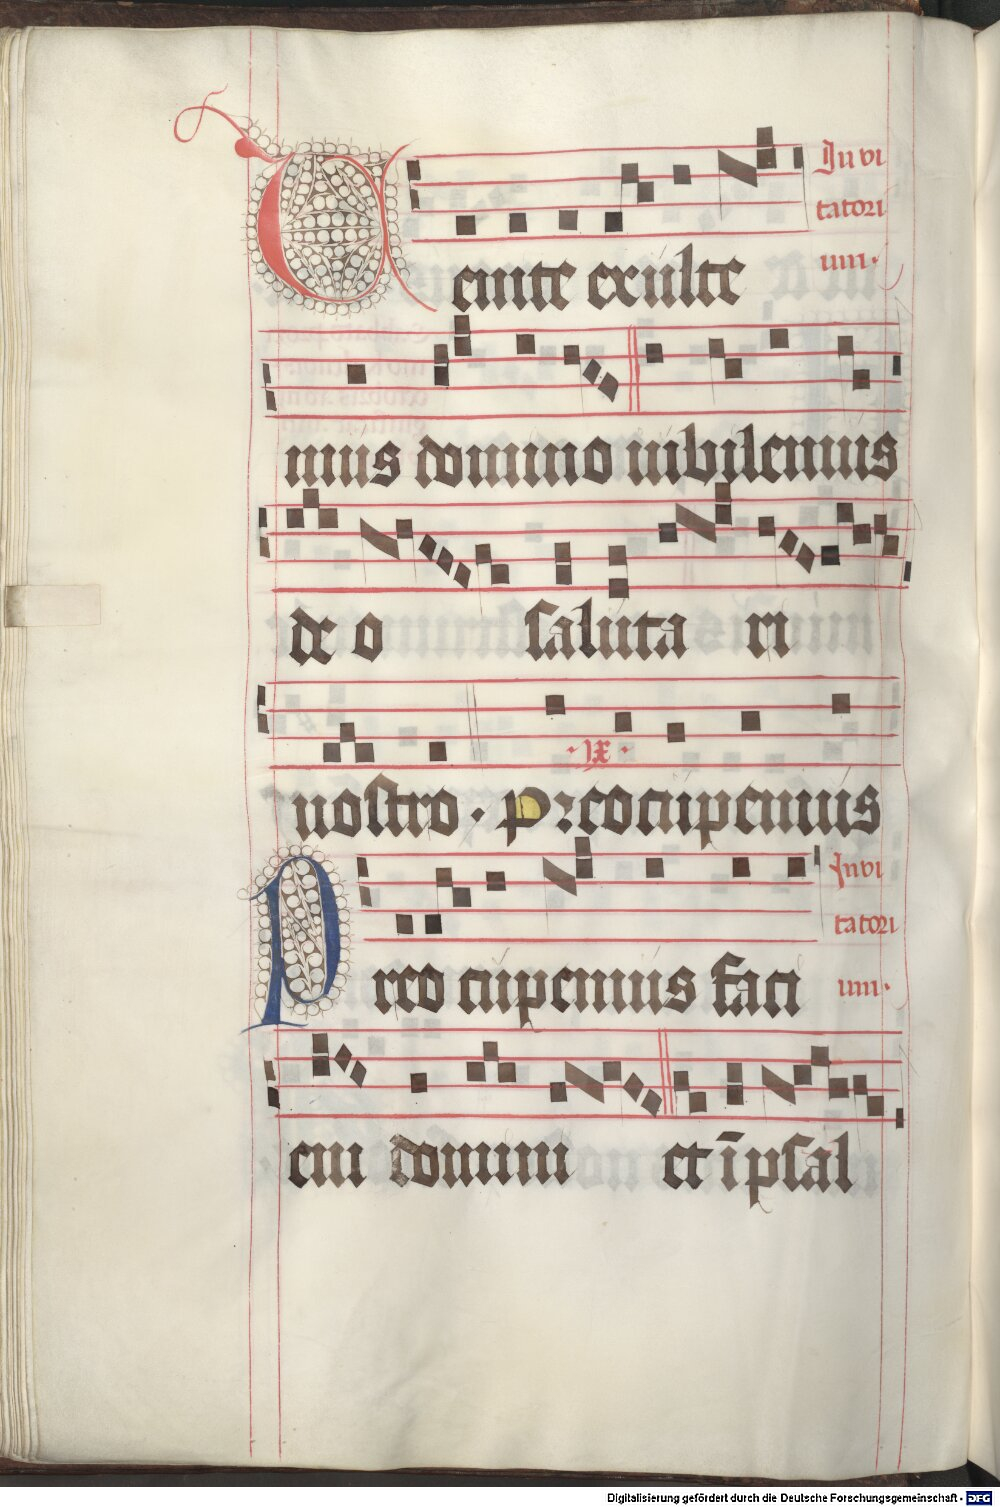 Venite exulte
Invi
tatori
um.
mus domino iubilemus
deo salutari
.ix.
nostro. Preocupemus
Preocupemus faci
Invi
tatori
um.
em domini et ī psal
Digitalisierung gefördert durch die Deutsche Forschungsgemeinschaft - DFG